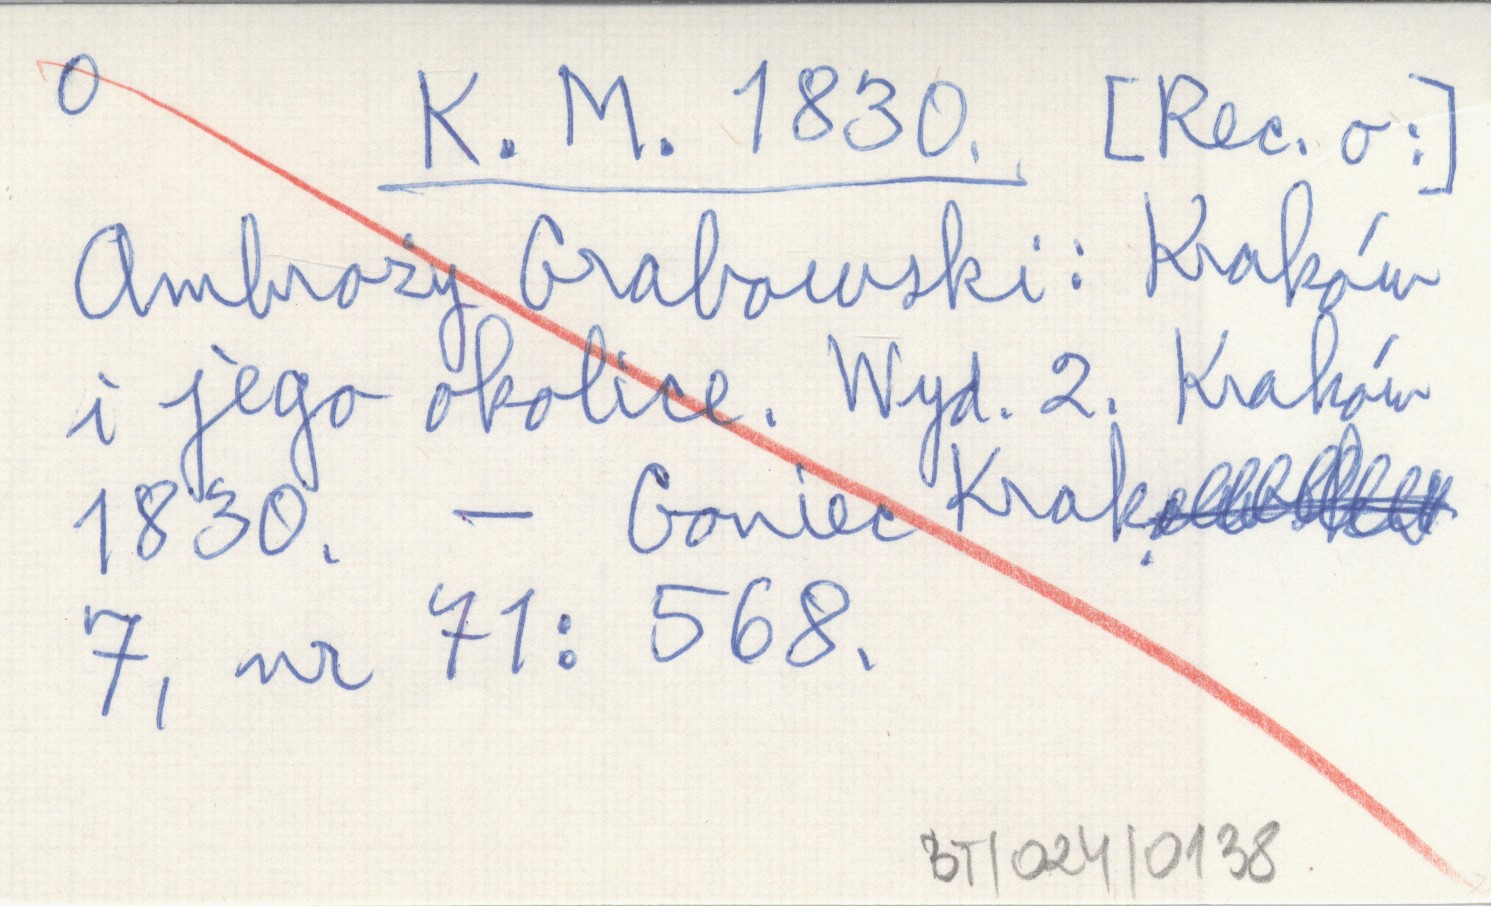 0 K. M. 1830. [Rec. o:]
Ambroży Grabowski: Kraków
i jego okolice. Wyd. 2. Kraków
1830. – Goniec Krak.
7, nr 71: 568.
BT/024/0138